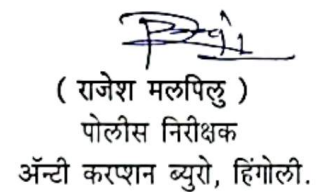 ( राजेश मलपिलु )
पोलीस निरीक्षक
ॲन्टी करप्शन ब्युरो, हिंगोली.